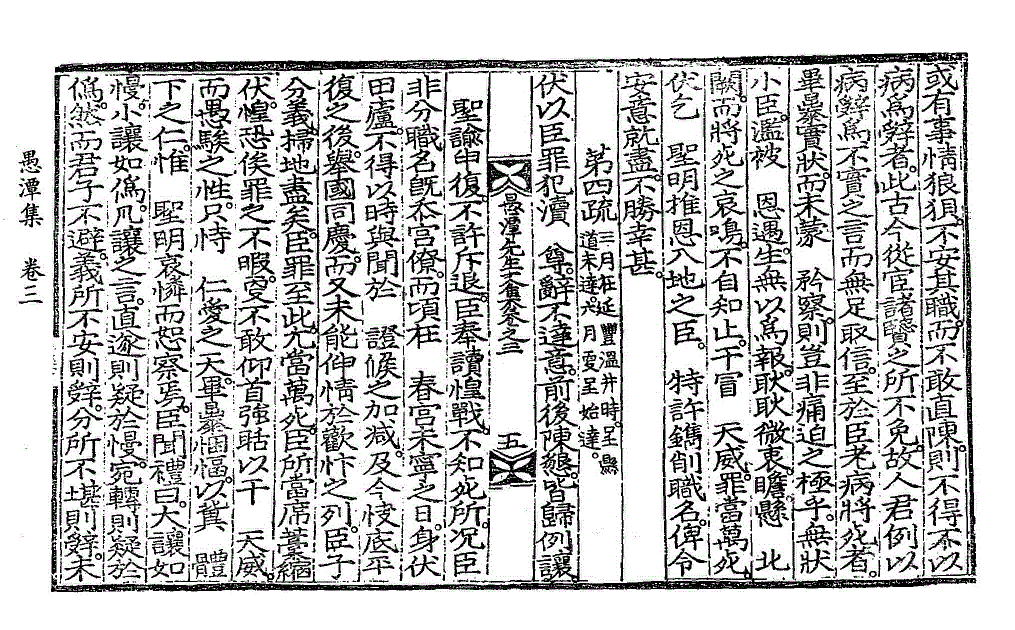 或有事情狼狽。不安其職。而不敢直陳。則不得不以
病爲辭者。此古今從宦諸賢之所不免。故人君例以
病辭爲不實之言而無足取信。至於臣老病將死者。
畢暴實狀。而未蒙 矜察。則豈非痛迫之極乎。無狀
小臣。濫被 恩遇。生無以爲報。耿耿微衷。瞻懸 北
闕。而將死之哀鳴。不自知止。干冒 天威。罪當萬死。
伏乞 聖明推恩入地之臣。 特許鐫削職名。俾令
安意就盡。不勝幸甚。
第四疏 三月在延豐溫井時。呈縣道未達。六月更呈始達。
伏以臣罪犯瀆 尊。辭不達意。前後陳懇。皆歸例讓。
愚潭先生文集卷之三 五
聖諭申復。不許斥退。臣奉讀惶戰。不知死所。况臣
非分職名。旣忝宮僚。而頃在 春宮未寧之日。身伏
田廬。不得以時與聞於 證候之加减。及今快底平
復之後。擧國同慶。而又未能伸情於歡忭之列。臣子
分義。掃地盡矣。臣罪至此。尤當萬死。臣所當席藁縮
伏。惶恐俟罪之不暇。更不敢仰首强聒以干 天威。
而愚騃之性。只恃 仁愛之天。畢暴悃愊。以冀 體
下之仁。惟 聖明哀憐而恕察焉。臣聞禮曰。大讓如
慢。小讓如僞。凡讓之言。直遂則疑於慢。宛轉則疑於
僞。然而君子不避。義所不安則辭。分所不堪則辭。未
愚潭集 卷三